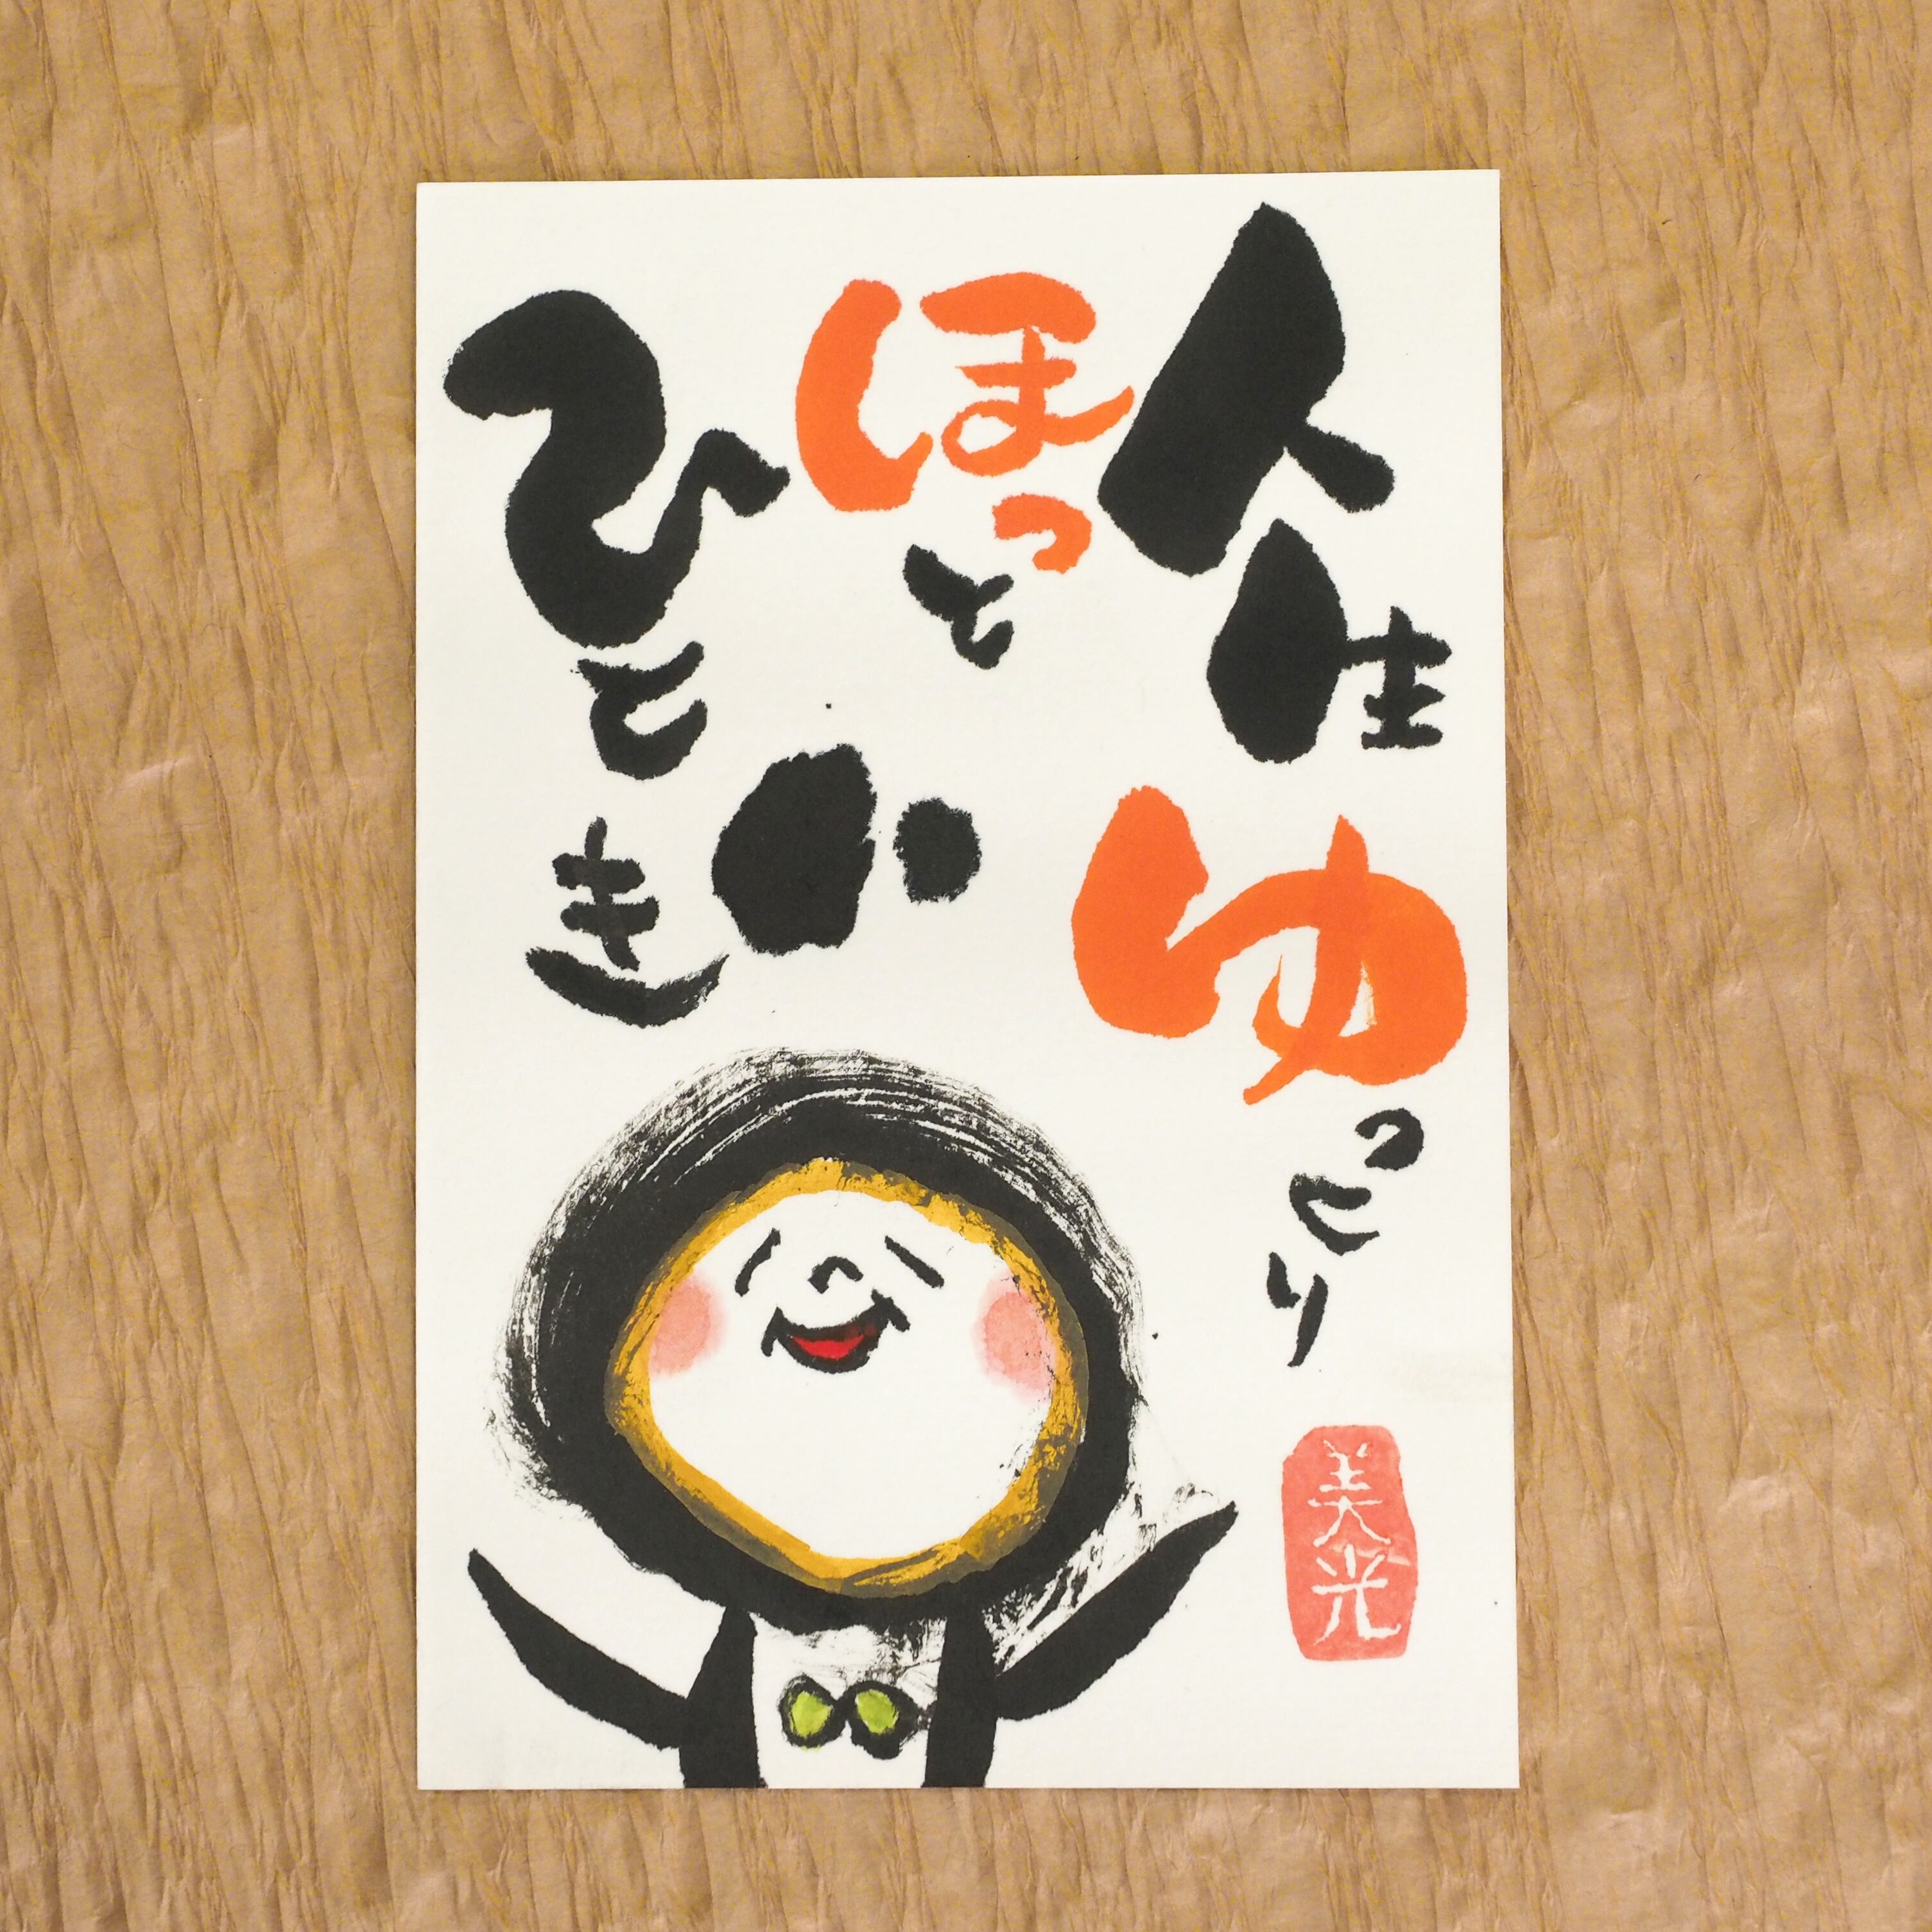 人生ゆっとり
ほっとい
ひとき
美光